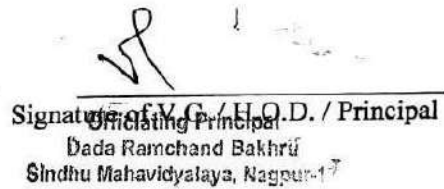 Signature of V.C. / H.O.D. / Principal
Officiating Principal
Dada Ramchand Bakhru
Sindhu Mahavidyalaya, Nagpur-17